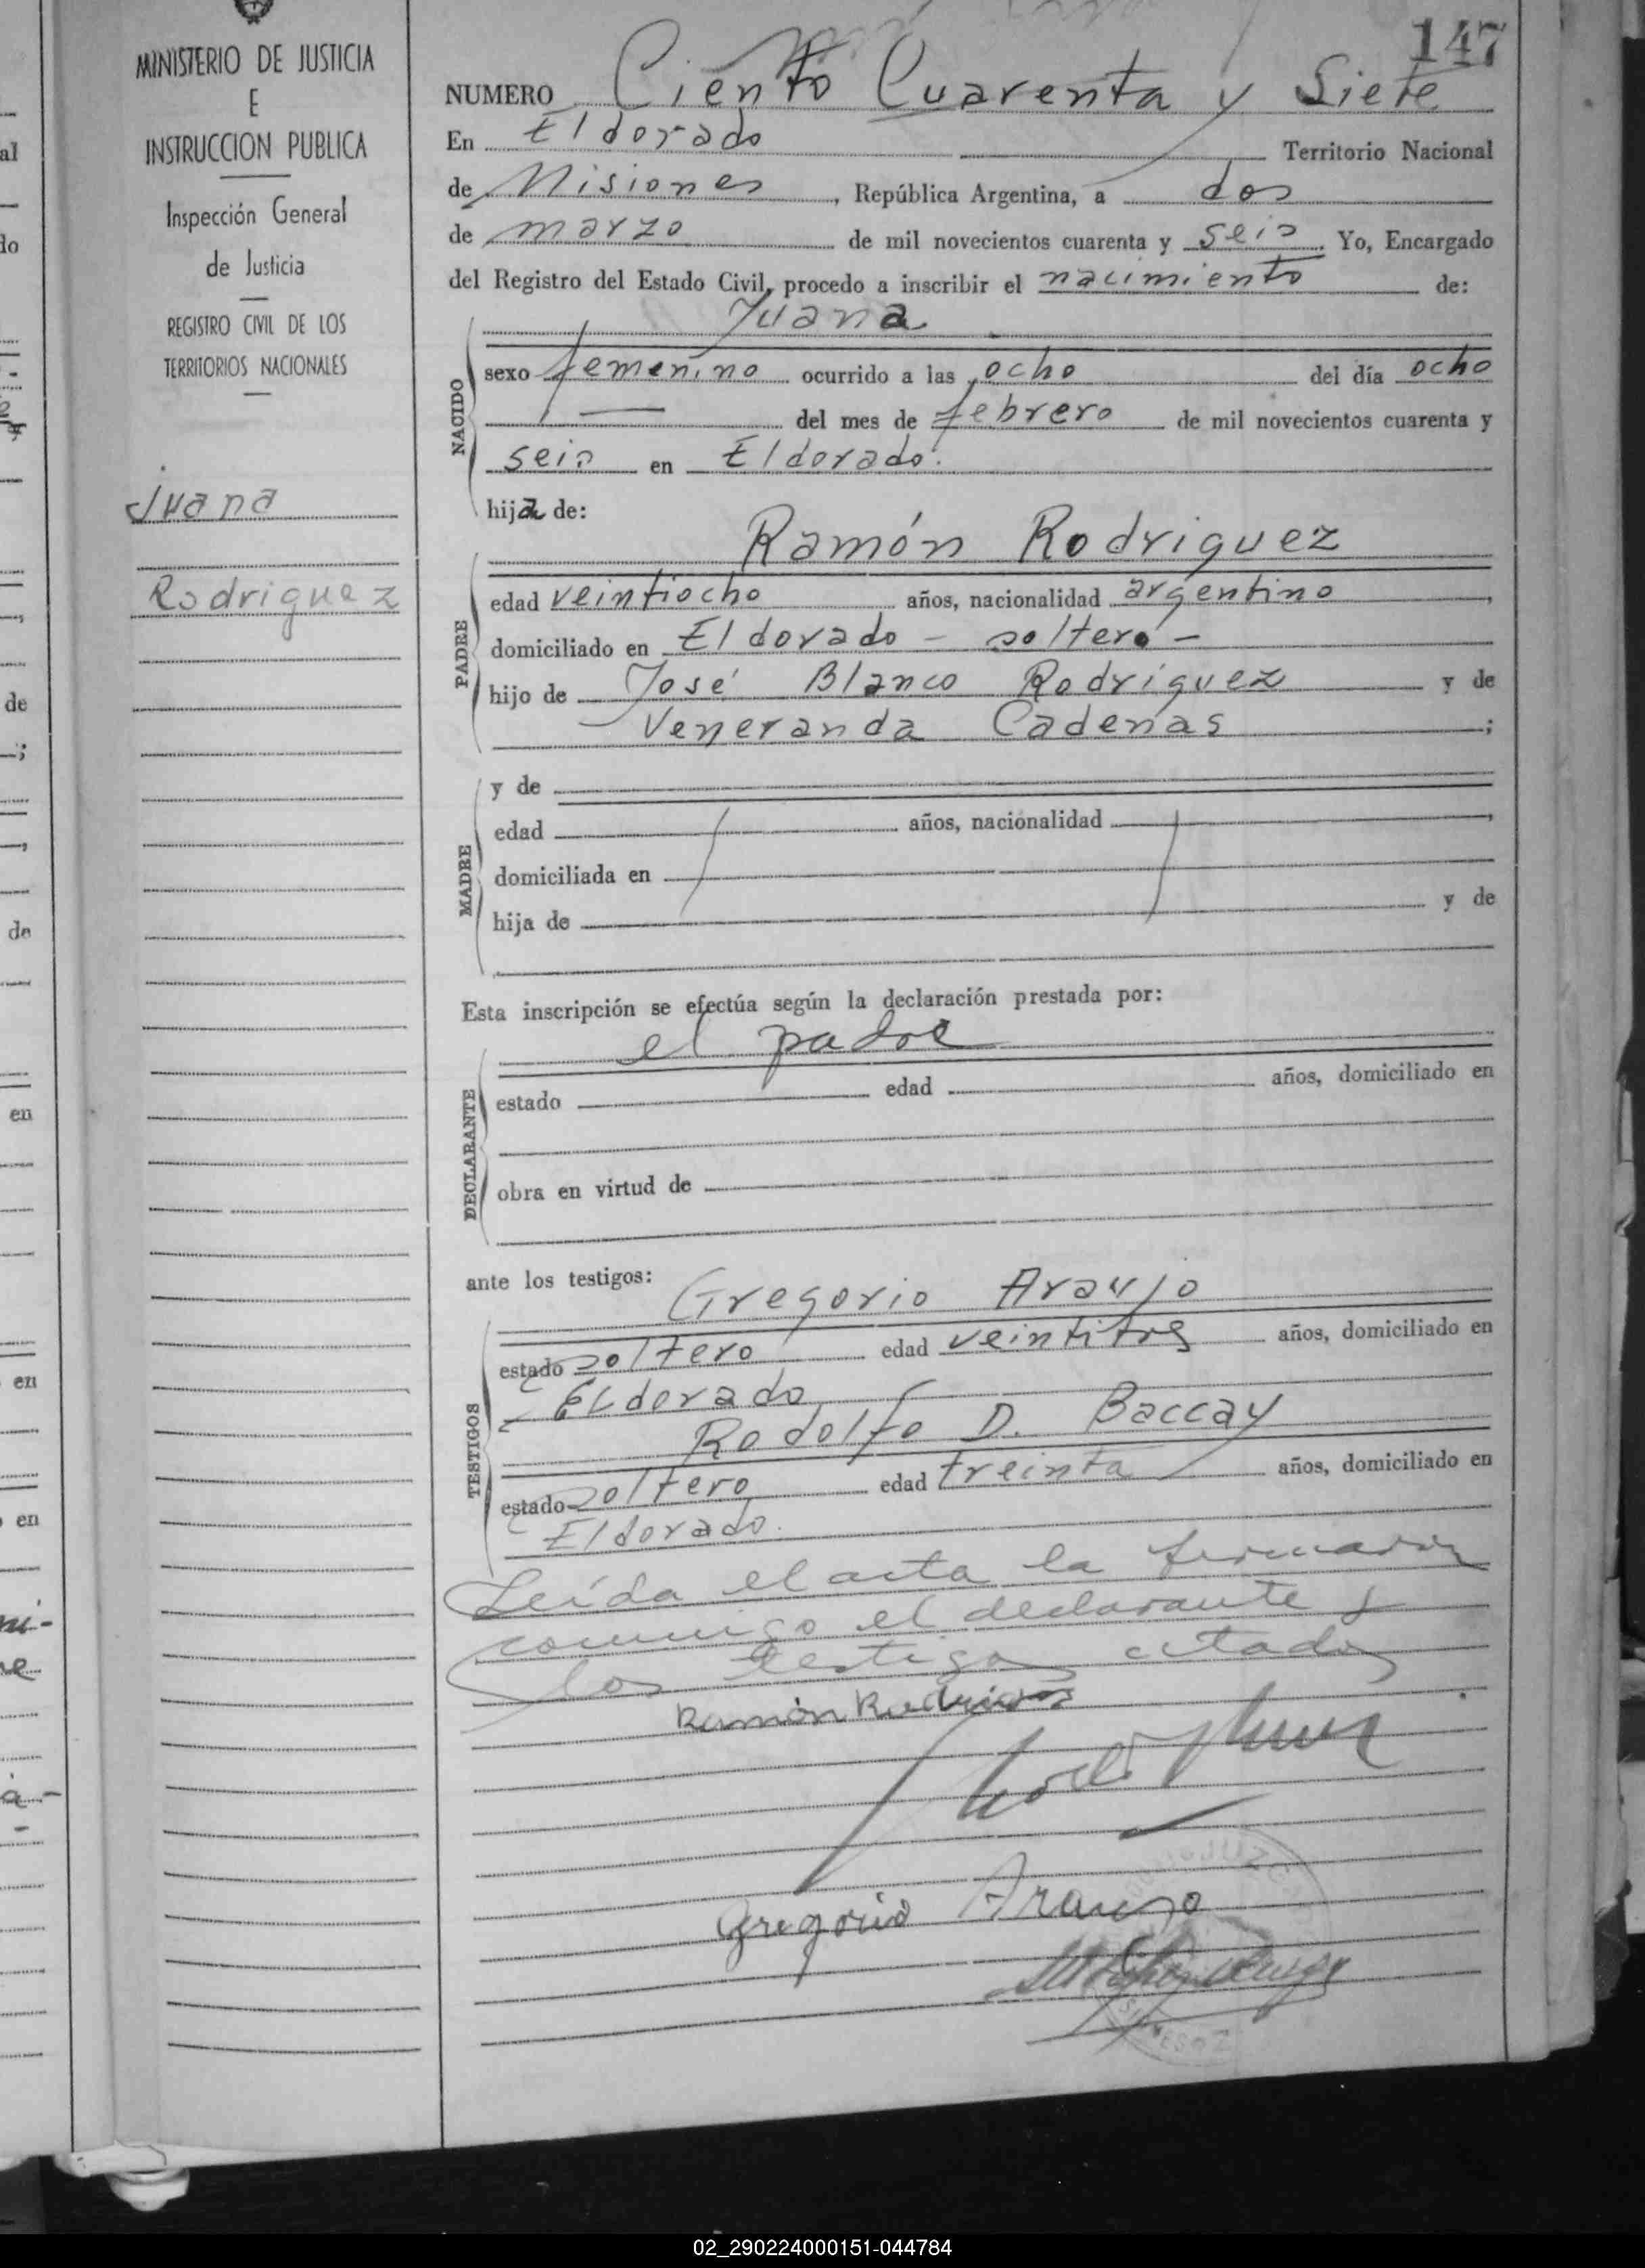 MINISTERIO DE JUSTICIA
E
INSTRUCCION PUBLICA
Inspección General
de Justicia
REGISTRO CIVIL DE LOS
TERRITORIOS NACIONALES
Juana
Rodriguez
147
NUMERO Ciento Cuarenta y Siete
En Eldorado Territorio Nacional
de Misiones, República Argentina, a dos
de marzo de mil novecientos cuarenta y seis. Yo, Encargado
del Registro del Estado Civil, procedo a inscribir el nacimiento de:
Juana
NACIDO
sexo femenino ocurrido a las ocho del día ocho
— del mes de febrero de mil novecientos cuarenta y
seis en Eldorado.
hija de:
Ramón Rodriguez
PADRE
edad veintiocho años, nacionalidad argentino,
domiciliado en Eldorado - soltero -
hijo de José Blanco Rodriguez y de
Veneranda Cadenas;
MADRE
y de
edad años, nacionalidad,
domiciliada en
hija de y de
Esta inscripción se efectúa según la declaración prestada por:
el padre
DECLARANTE
estado edad años, domiciliado en
obra en virtud de
ante los testigos:
Gregorio Araujo
TESTIGOS
estado soltero edad veintitrs años, domiciliado en
Eldorado
Rodolfo D. Baccay
estado soltero edad treinta años, domiciliado en
Eldorado.
Leída el acta la firmaron
conmigo el declarante y
los testigos citados
Ramón Rodriguez
Gregorio Araujo
02_290224000151-044784